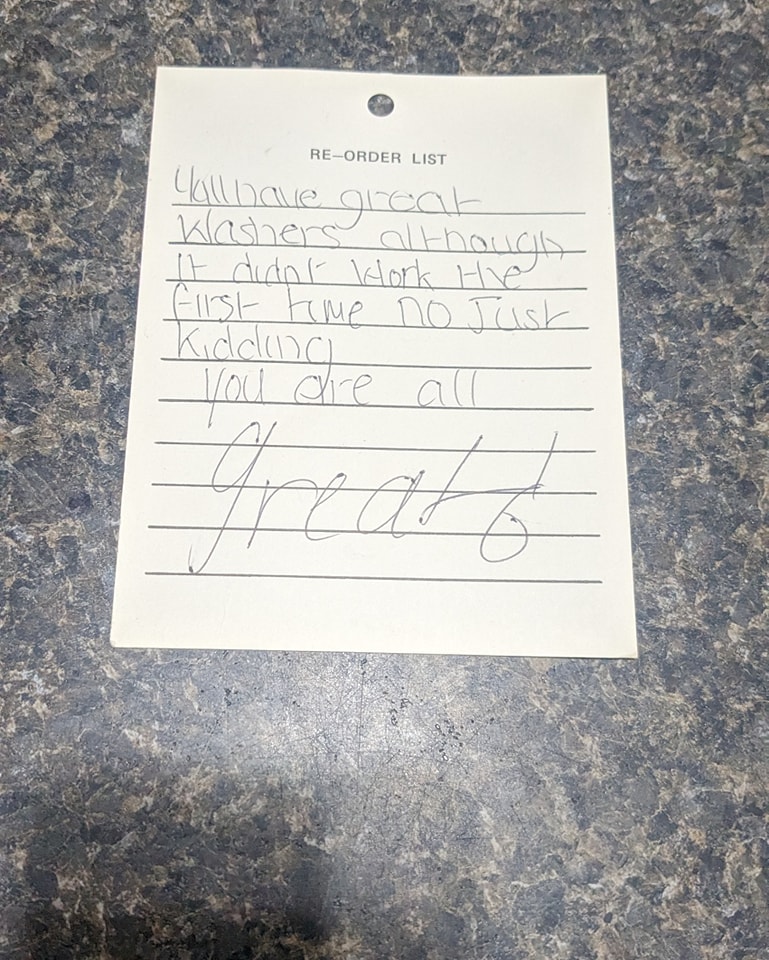 RE-ORDER LIST
Yall have great
Washers although
it didnt work the
first time no Just
kidding
you are all
great